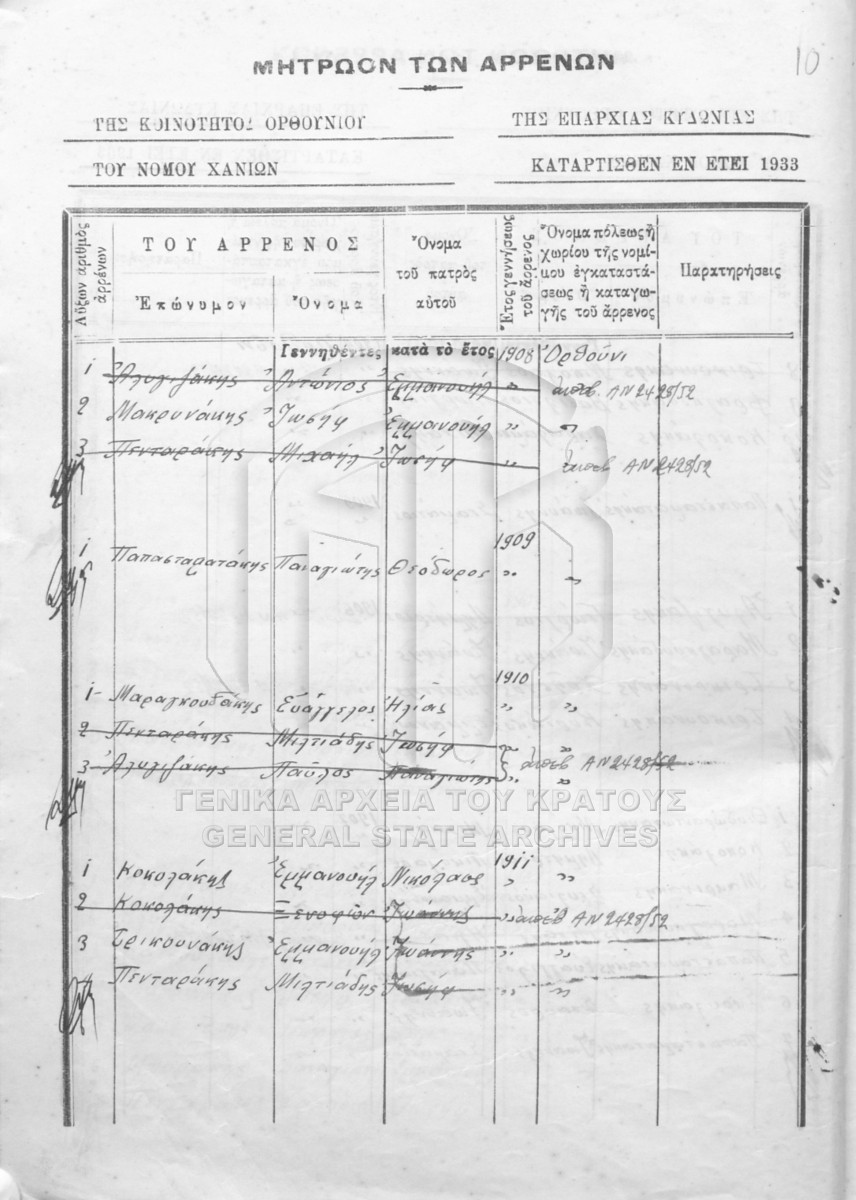 10
ΜΗΤΡΩΟΝ ΤΩΝ ΑΡΡΕΝΩΝ
ΤΗΣ ΚΟΙΝΟΤΗΤΟΣ ΟΡΘΟΥΝΙΟΥ ΤΗΣ ΕΠΑΡΧΙΑΣ ΚΥΔΩΝΙΑΣ
ΤΟΥ ΝΟΜΟΥ ΧΑΝΙΩΝ ΚΑΤΑΡΤΙΣΘΕΝ ΕΝ ΕΤΕΙ 1933
Αὔξων ἀριθμὸς ἀρρένων
ΤΟΥ ΑΡΡΕΝΟΣ
Ἐπώνυμον Ὄνομα
Ὄνομα
τοῦ πατρὸς
αὐτοῦ
Ἔτος γεννήσεως τοῦ ἄρρενος
Ὄνομα πόλεως ἢ
χωρίου τῆς νομί-
μου ἐγκαταστά-
σεως ἢ καταγω-
γῆς τοῦ ἄρρενος
Παρατηρήσεις
Γεννηθέντες κατὰ τὸ ἔτος 1908 Ὀρθούνι
1 Ἀλυγιζάκης Ἀντώνιος Ἐμμανουήλ " ἀπεβ. ΑΝ 2428/52
2 Μακρυνάκης Ἰωσήφ Ἐμμανουήλ " "
3 Πενταράκης Μιχαήλ Ἰωσήφ " ἀπεβ ΑΝ 2428/52
1909
1 Παπασταρατάκης Παναγιώτης Θεόδωρος " "
1910
1 Μαραγκουδάκης Εὐάγγελος Ἠλίας " "
2 Πενταράκης Μιλτιάδης Ἰωσήφ " "
3 Ἀλυγιζάκης Παῦλος Παναγιώτης " ἀπεβ ΑΝ 2428/52
ΓΕΝΙΚΑ ΑΡΧΕΙΑ ΤΟΥ ΚΡΑΤΟΥΣ
GENERAL STATE ARCHIVES
1911
1 Κοκολάκης Ἐμμανουήλ Νικόλαος " "
2 Κοκολάκης Ξενοφῶν Ἰωάννης " ἀπεβ ΑΝ 2428/52
3 Τρικουνάκης Ἐμμανουήλ Ἰωάννης " "
Πενταράκης Μιλτιάδης Ἰωσήφ " "